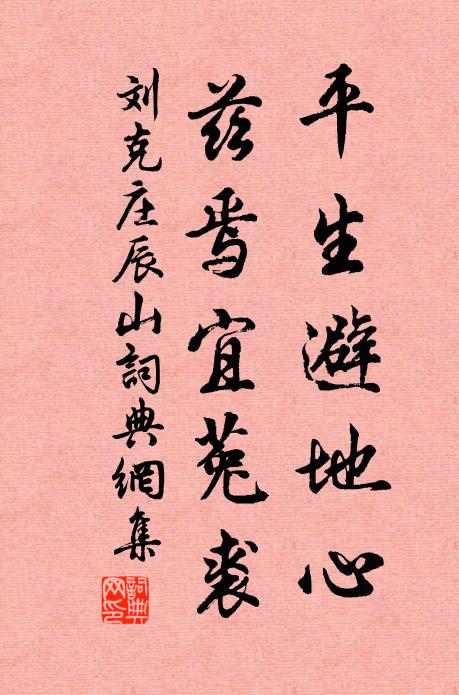 平生避地心
兹焉宜菟裘
刘克庄辰山詞典網集
詞典網印